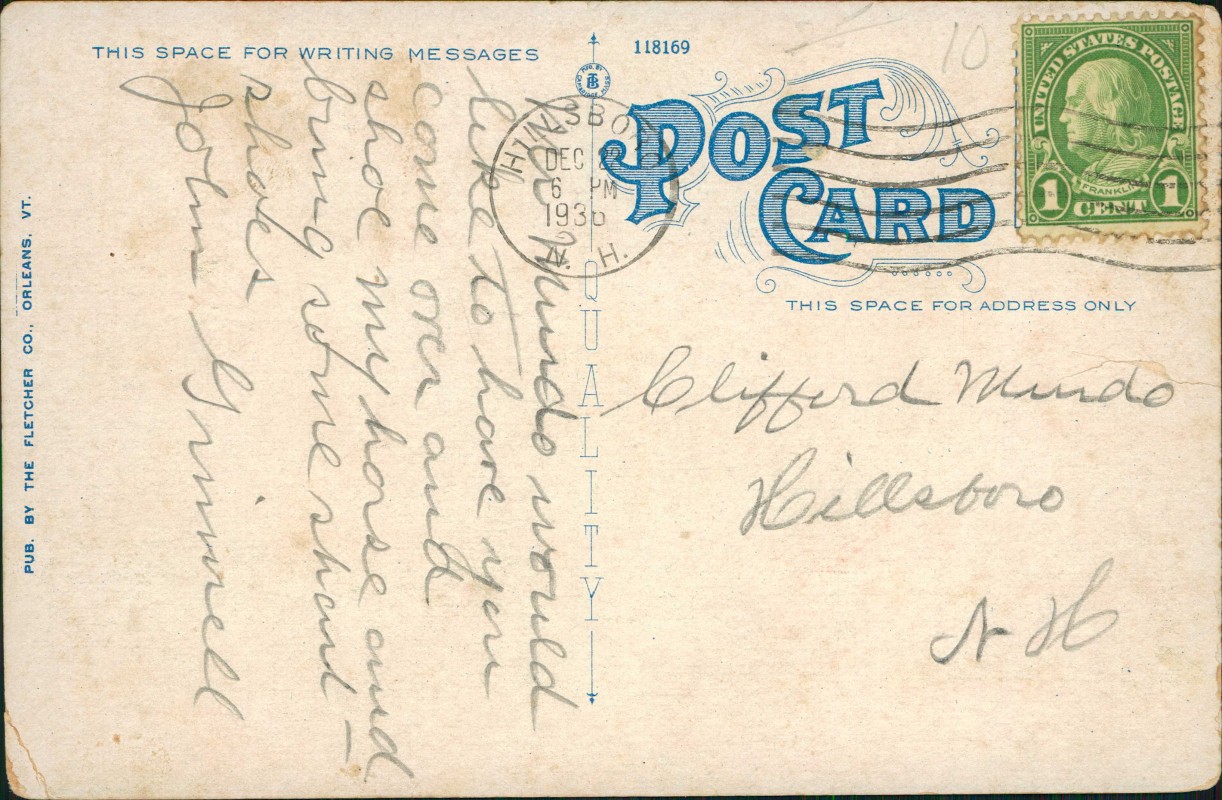 THIS SPACE FOR WRITING MESSAGES
118169
POST
CARD
UNITED STATES POSTAGE
FRANKLIN
1 CENT 1
HILLSBORO
DEC
6 PM
1936
N. H.
THIS SPACE FOR ADDRESS ONLY
QUALITY
PUB. BY THE FLETCHER CO., ORLEANS, VT.
Mr Mundo would
like to have you
come over and
shoe my horse and
bring some sharp
shoes
John Grinnell
Clifford Mundo
Hillsboro
N H
10